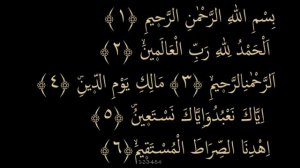 بِسْمِ اللهِ الرَّحْمٰنِ الرَّحِيمِ ﴿١﴾
اَلْحَمْدُ لِلهِ رَبِّ الْعَالَمِينَۙ ﴿٢﴾
اَلرَّحْمٰنِالرَّحِيمِۙ ﴿٣﴾ مَالِكِ يَوْمِ الدّ۪ينِۜ ﴿٤﴾
اِيَّاكَ نَعْبُدُوَاِيَّاكَ نَسْتَع۪ينُۜ ﴿٥﴾
اِهْدِنَا الصِّرَاطَ الْمُسْتَق۪يمَۙ ﴿٦﴾